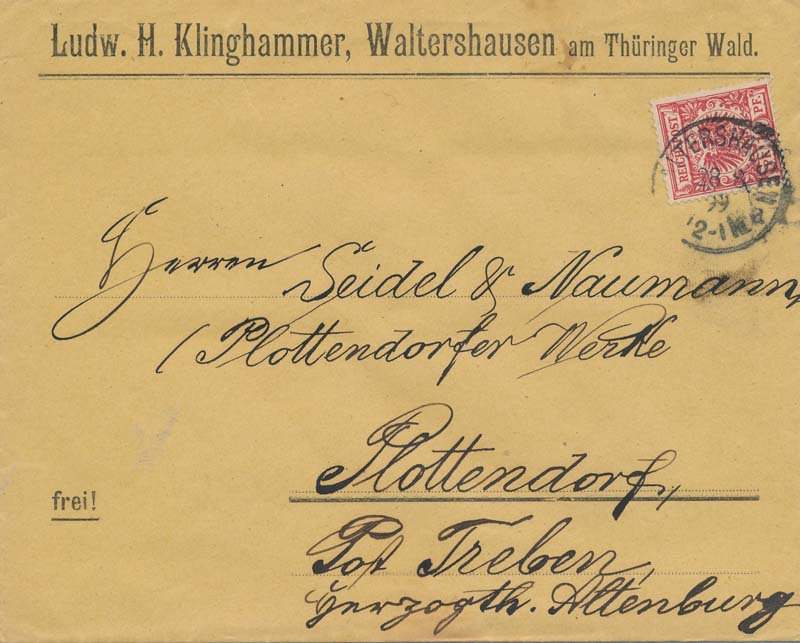 Ludw. H. Klinghammer, Waltershausen am Thüringer Wald.
REICHSPOST
WALTERSHAUSEN
99
12-1 N
Herren Seidel & Naumann,
(Plottendorfer Werke
Plottendorf,
frei!
Post Treben,
Herzogth. Altenburg